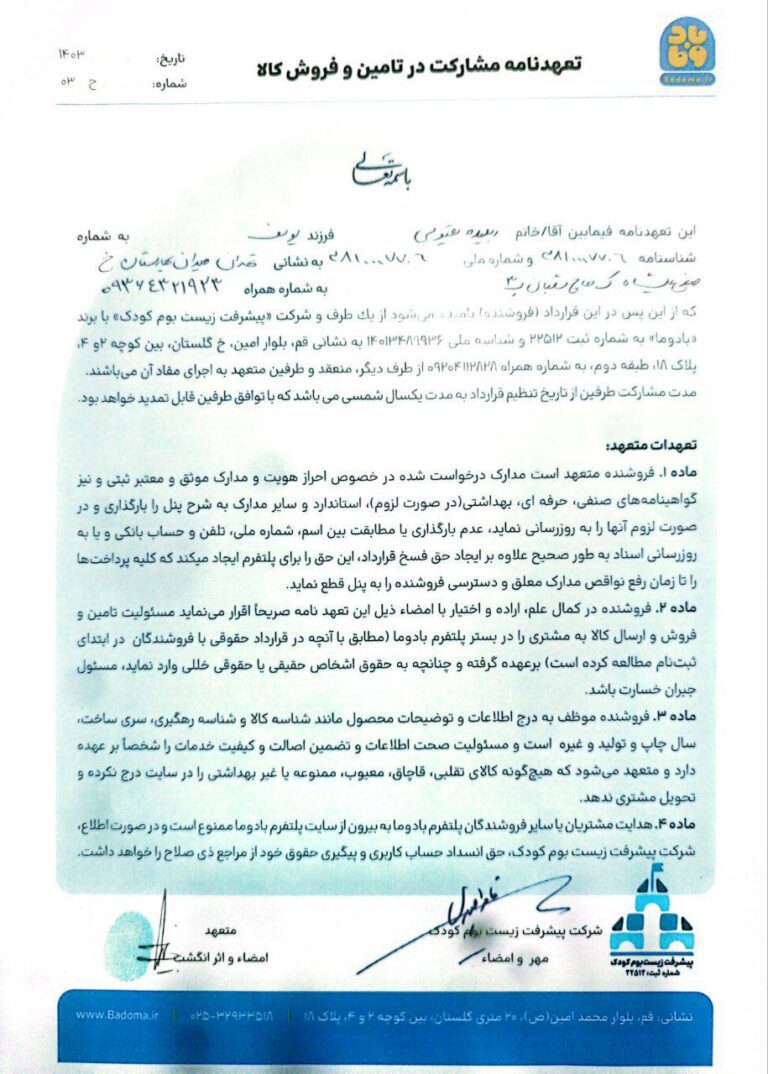 بادوما
Badoma.ir
تعهدنامه مشارکت در تامین و فروش کالا
تاریخ: ۱۴۰۳
شماره: ح ۰۳
باسمه تعالی
این تعهدنامه فیمابین آقا/خانم فرزند یوسف به شماره
شناسنامه ۳۸۱۰۰۰۷۷۰۶ و شماره ملی ۳۸۱۰۰۰۷۷۰۶ به نشانی تهران میدان بهارستان خ
صفی علیشاه ک پ ۳ به شماره همراه ۰۹۳۶۴۳۲۱۹۲۳
که از این پس در این قرارداد (فروشنده) نامیده می‌شود از یك طرف و شرکت «پیشرفت زیست بوم کودک» با برند
«بادوما» به شماره ثبت ۲۲۵۱۲ و شناسه ملی ۱۴۰۱۳۴۸۹۹۳۶ به نشانی قم، بلوار امین، خ گلستان، بین کوچه ۲ و ۴،
پلاک ۱۸، طبقه دوم، به شماره همراه ۰۹۲۰۴۱۱۲۸۲۸ از طرف دیگر، منعقد و طرفین متعهد به اجرای مفاد آن می‌باشند.
مدت مشارکت طرفین از تاریخ تنظیم قرارداد به مدت یکسال شمسی می باشد که با توافق طرفین قابل تمدید خواهد بود.
تعهدات متعهد:
ماده ۱. فروشنده متعهد است مدارک درخواست شده در خصوص احراز هویت و مدارک موثق و معتبر ثبتی و نیز
گواهینامه‌های صنفی، حرفه ای، بهداشتی(در صورت لزوم)، استاندارد و سایر مدارک به شرح پنل را بارگذاری و در
صورت لزوم آنها را به روزرسانی نماید، عدم بارگذاری یا مطابقت بین اسم، شماره ملی، تلفن و حساب بانکی و یا به
روزرسانی اسناد به طور صحیح علاوه بر ایجاد حق فسخ قرارداد، این حق را برای پلتفرم ایجاد میکند که کلیه پرداخت‌ها
را تا زمان رفع نواقص مدارک معلق و دسترسی فروشنده را به پنل قطع نماید.
ماده ۲. فروشنده در کمال علم، اراده و اختیار با امضاء ذیل این تعهد نامه صریحاً اقرار می‌نماید مسئولیت تامین و
فروش و ارسال کالا به مشتری را در بستر پلتفرم بادوما (مطابق با آنچه در قرارداد حقوقی با فروشندگان در ابتدای
ثبت‌نام مطالعه کرده است) برعهده گرفته و چنانچه به حقوق اشخاص حقیقی یا حقوقی خللی وارد نماید، مسئول
جبران خسارت باشد.
ماده ۳. فروشنده موظف به درج اطلاعات و توضیحات محصول مانند شناسه کالا و شناسه رهگیری، سری ساخت،
سال چاپ و تولید و غیره است و مسئولیت صحت اطلاعات و تضمین اصالت و کیفیت خدمات را شخصاً بر عهده
دارد و متعهد می‌شود که هیچ‌گونه کالای تقلبی، قاچاق، معیوب، ممنوعه یا غیر بهداشتی را در سایت درج نکرده و
تحویل مشتری ندهد.
ماده ۴. هدایت مشتریان یا سایر فروشندگان پلتفرم بادوما به بیرون از سایت پلتفرم بادوما ممنوع است و در صورت اطلاع،
شرکت پیشرفت زیست بوم کودک، حق انسداد حساب کاربری و پیگیری حقوق خود از مراجع ذی صلاح را خواهد داشت.
شرکت پیشرفت زیست بوم کودک
مهر و امضاء
متعهد
امضاء و اثر انگشت
پیشرفت زیست‌بوم کودک
شماره ثبت: ۲۲۵۱۲
نشانی: قم، بلوار محمد امین(ص)، ۲۰ متری گلستان، بین کوچه ۲ و ۴، پلاک ۱۸ | ۰۲۵-۳۲۹۳۳۵۱۸ | www.Badoma.ir